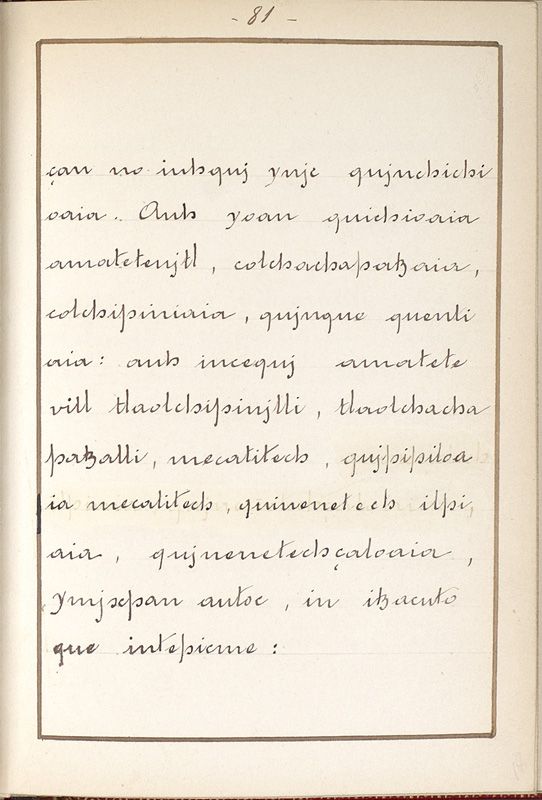 - 81 -
çan no iuhquj ynje qujnchichi
oaia. Auh yoan quichioaia
amatetenjtl, colchachapatzaia,
colchipiniaia, qujnque quenti
aia: auh incequj amatete
vitl tlaolchipinjlli, tlaolchacha
patzalli, mecatitech, qujpipiloa
ia mecatitech, quinenetech ilpi,
aia, qujnenetechçaloaia,
ymjxpan autoc, in itzacuto
que intepicme: